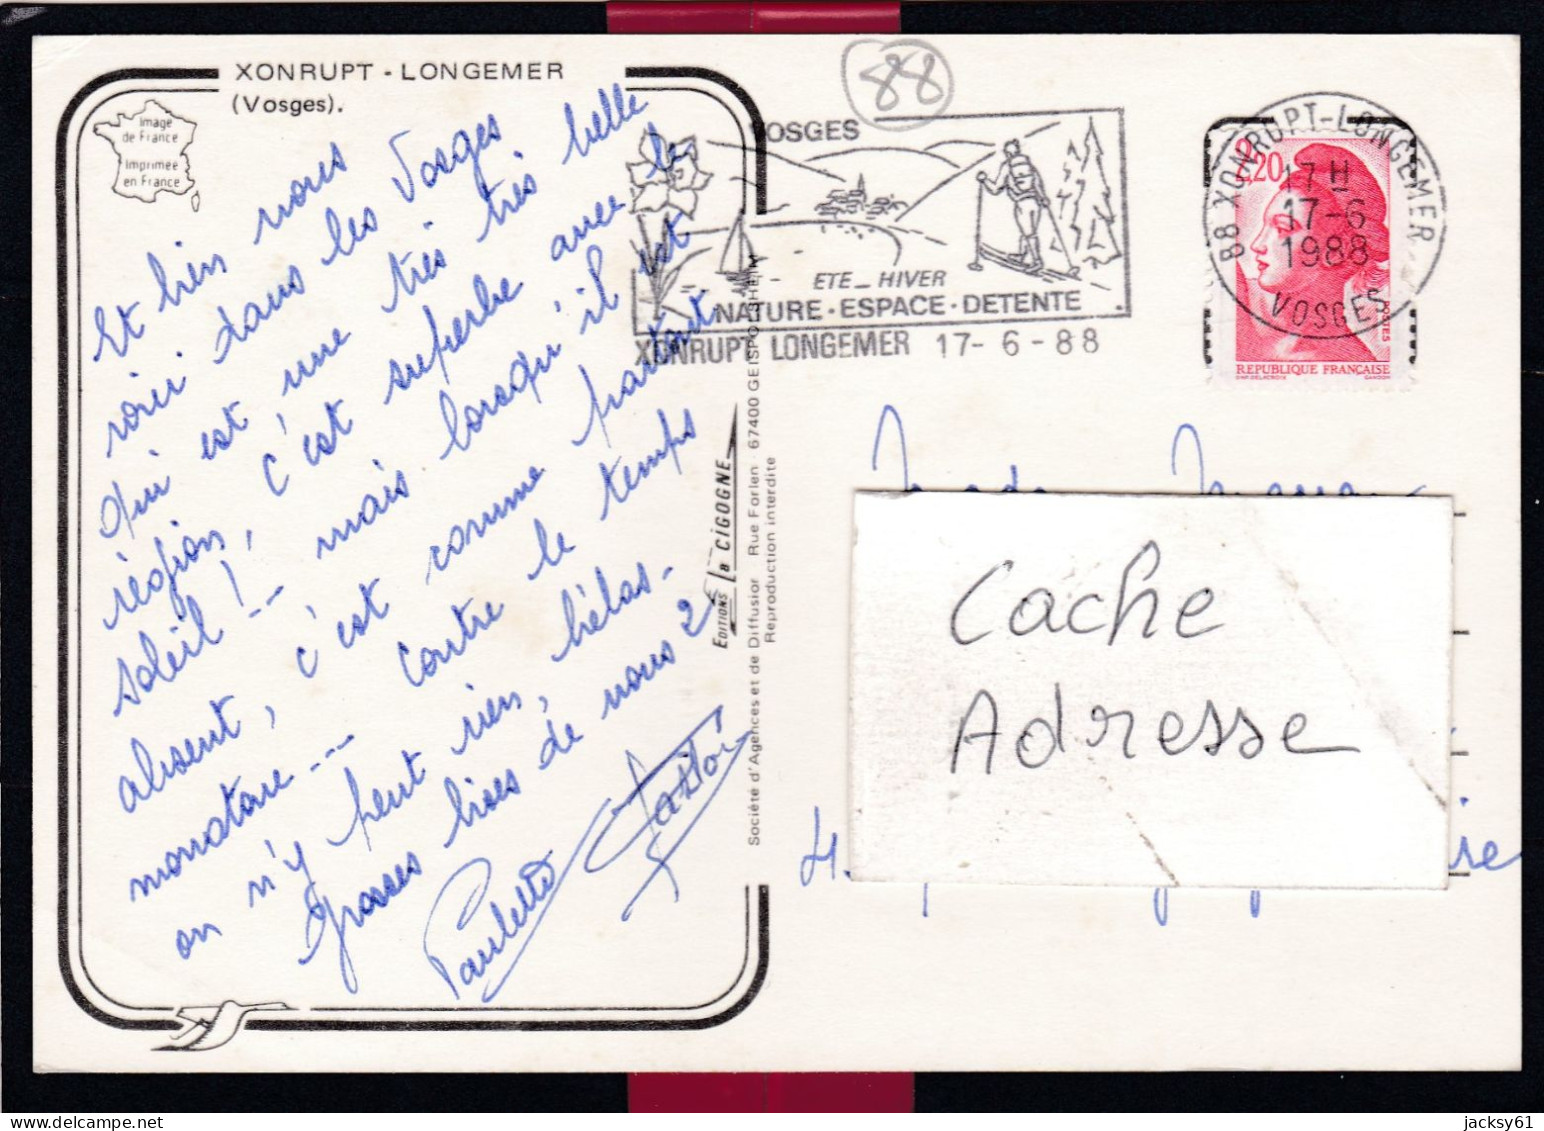 XONRUPT - LONGEMER
(Vosges).
Image
de France
Imprimée
en France
Et bien nous
voici dans les Vosges
qui est une très très belle
région, c'est superbe avec le
soleil ! -- mais lorsqu'il est
absent, c'est comme partout
monotone --- contre le temps
on n'y peut rien, hélas -
grosses bises de nous 2
Paulette
88
VOSGES
ETE - HIVER
NATURE - ESPACE - DETENTE
XONRUPT LONGEMER 17 - 6 - 88
88 XONRUPT-LONGEMER
17 H
17-6
1988
VOSGES
2,20
POSTES
REPUBLIQUE FRANÇAISE
D'AP. DELACROIX GANDON
EDITIONS la CIGOGNE
Société d'Agences et de Diffusion Rue Forlen 67400 GEISPOLSHEIM
Reproduction interdite
Cache
Adresse
4,
jacksy61